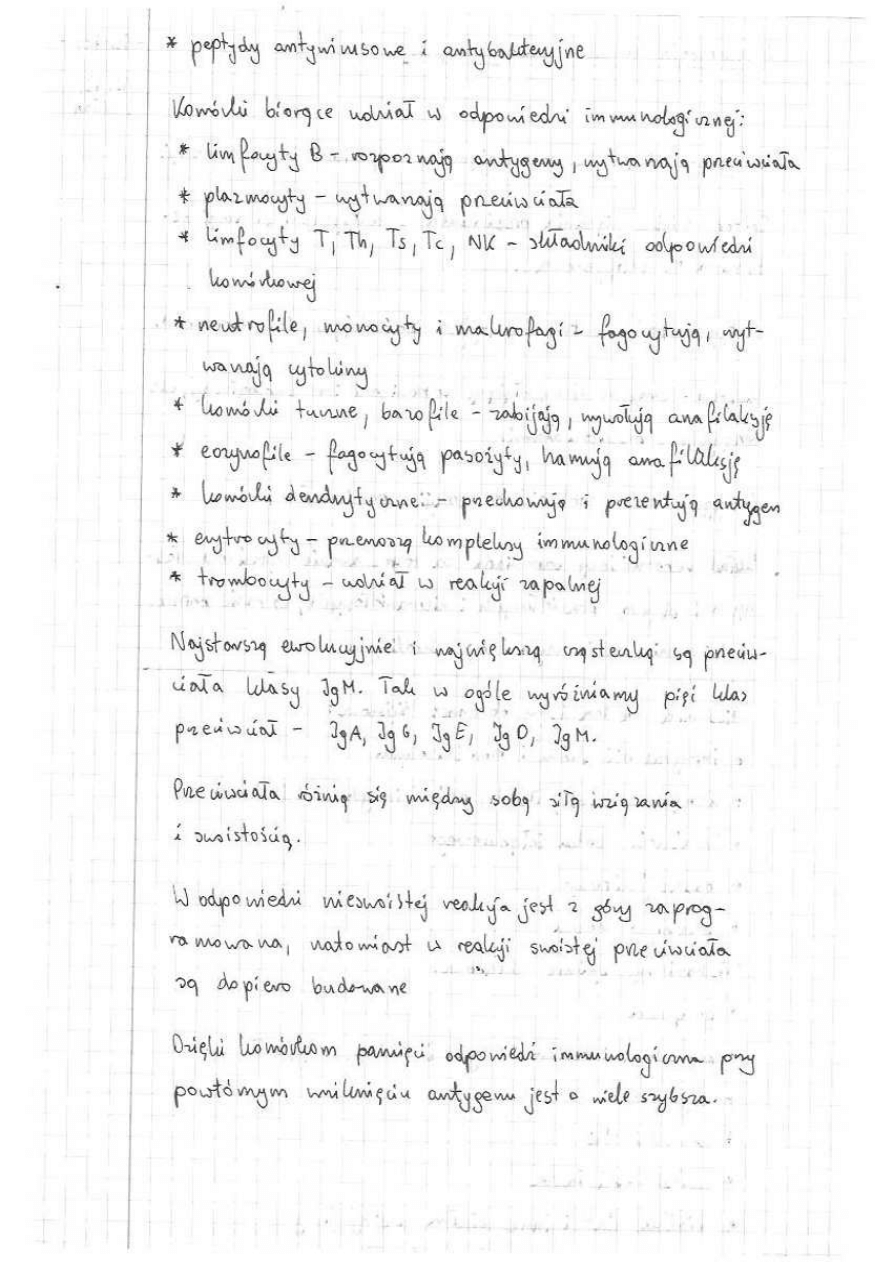 * peptydy antywirusowe i antybakteryjne
Komórki biorące udział w odpowiedzi immunologicznej:
* limfocyty B - rozpoznają antygeny, wytwarzają przeciwciała
* plazmocyty - wytwarzają przeciwciała
* limfocyty T, Th, Ts, Tc, NK - składniki odpowiedzi
komórkowej
* neutrofile, monocyty i makrofagi - fagocytują, wyt-
warzają cytokiny
* komórki tuczne, bazofile - zabijają, wywołują anafilaksję
* eozynofile - fagocytują pasożyty, hamują anafilaksję
* komórki dendrytyczne - przechowują i prezentują antygen
* erytrocyty - przenoszą kompleksy immunologiczne
* trombocyty - udział w reakcji zapalnej
Najstarszą ewolucyjnie i największą cząsteczką są przeciw-
ciała klasy IgM. Tak w ogóle wyróżniamy pięć klas
przeciwciał - IgA, IgG, IgE, IgD, IgM.
Przeciwciała różnią się między sobą siłą wiązania
i swoistością.
W odpowiedzi nieswoistej reakcja jest z góry zaprog-
ramowana, natomiast w reakcji swoistej przeciwciała
są dopiero budowane
Dzięki komórkom pamięci odpowiedź immunologiczna przy
powtórnym wniknięciu antygenu jest o wiele szybsza.